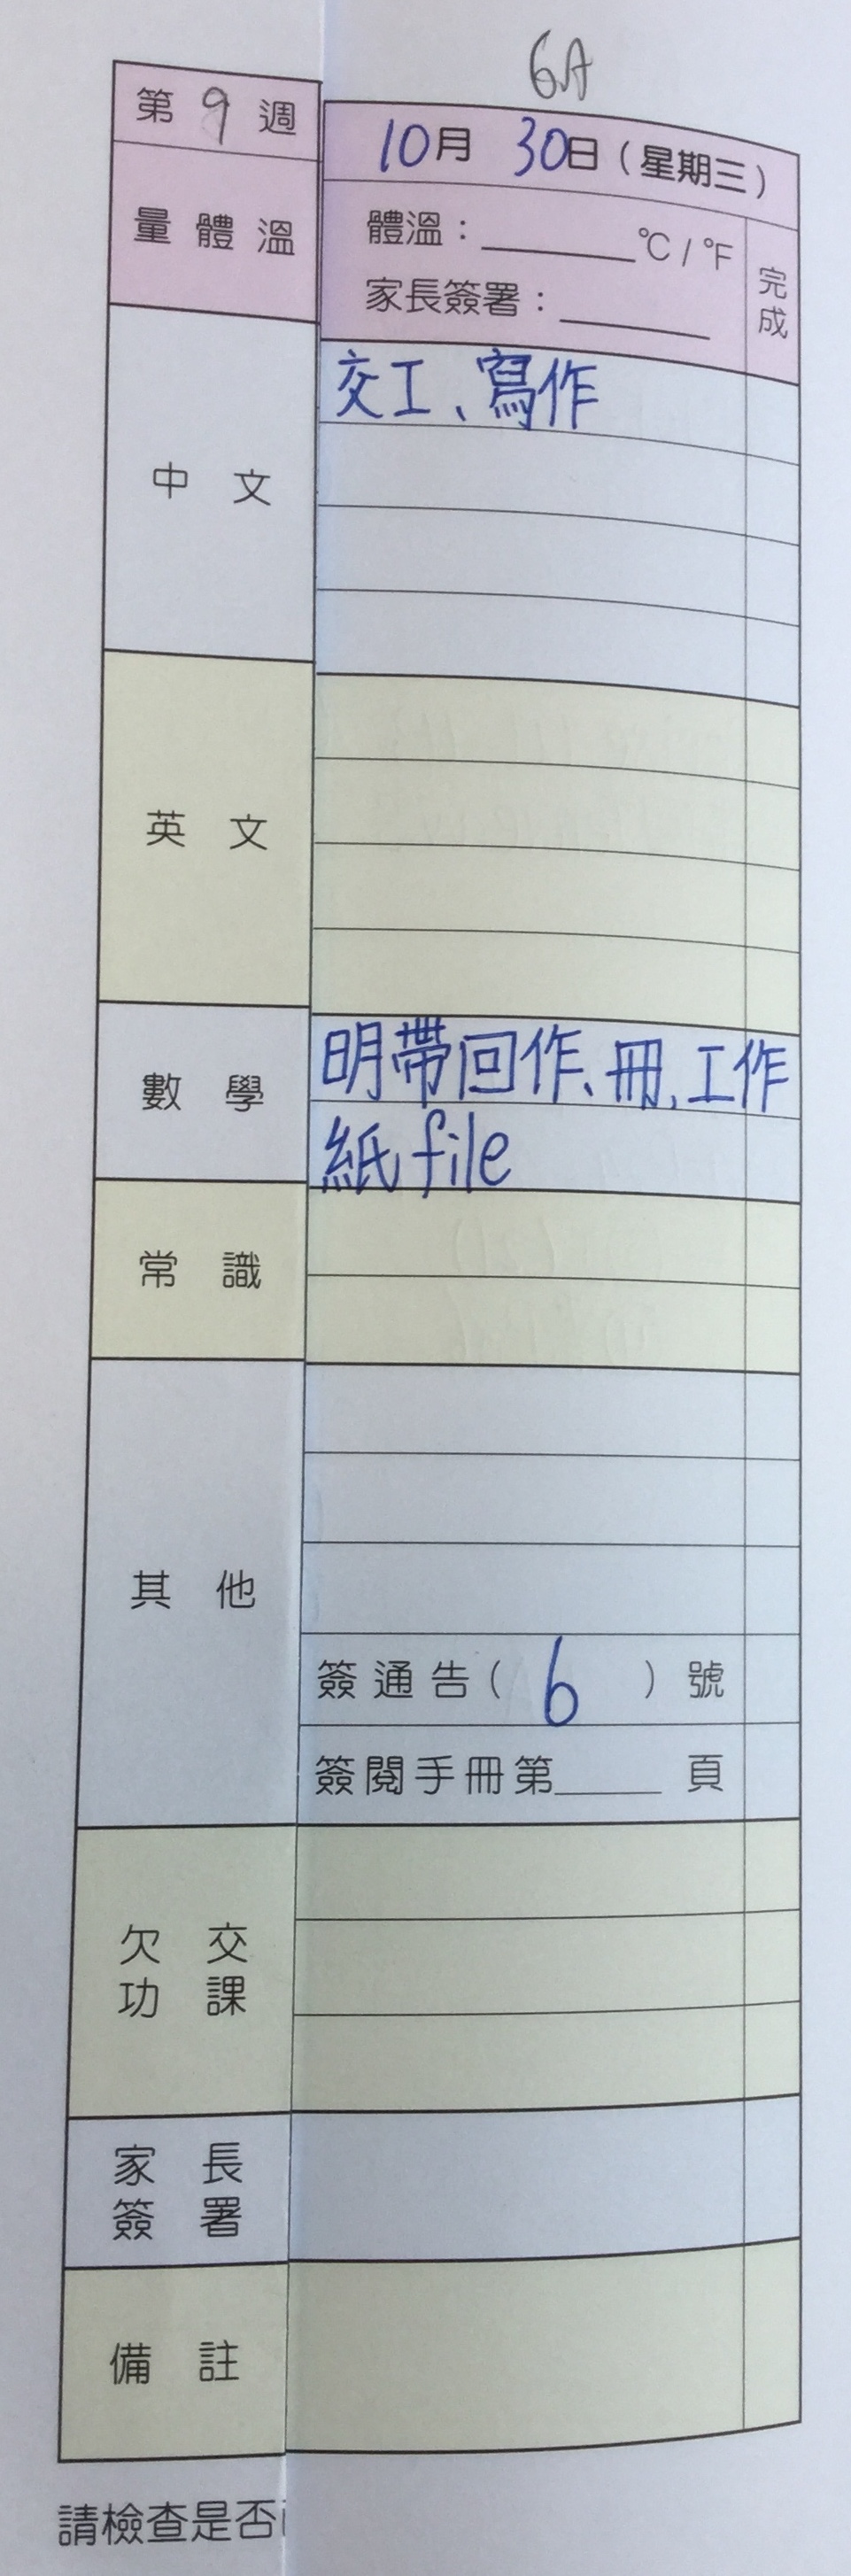 6A
第 9 週
10月 30日（星期三）
量體溫
體溫：______°C / °F
家長簽署：______
完成
中文
交工、寫作
英文
數學
明帶回作、冊、工作
紙 file
常識
其他
簽通告（ 6 ）號
簽閱手冊第____頁
欠交
功課
家長
簽署
備註
請檢查是否